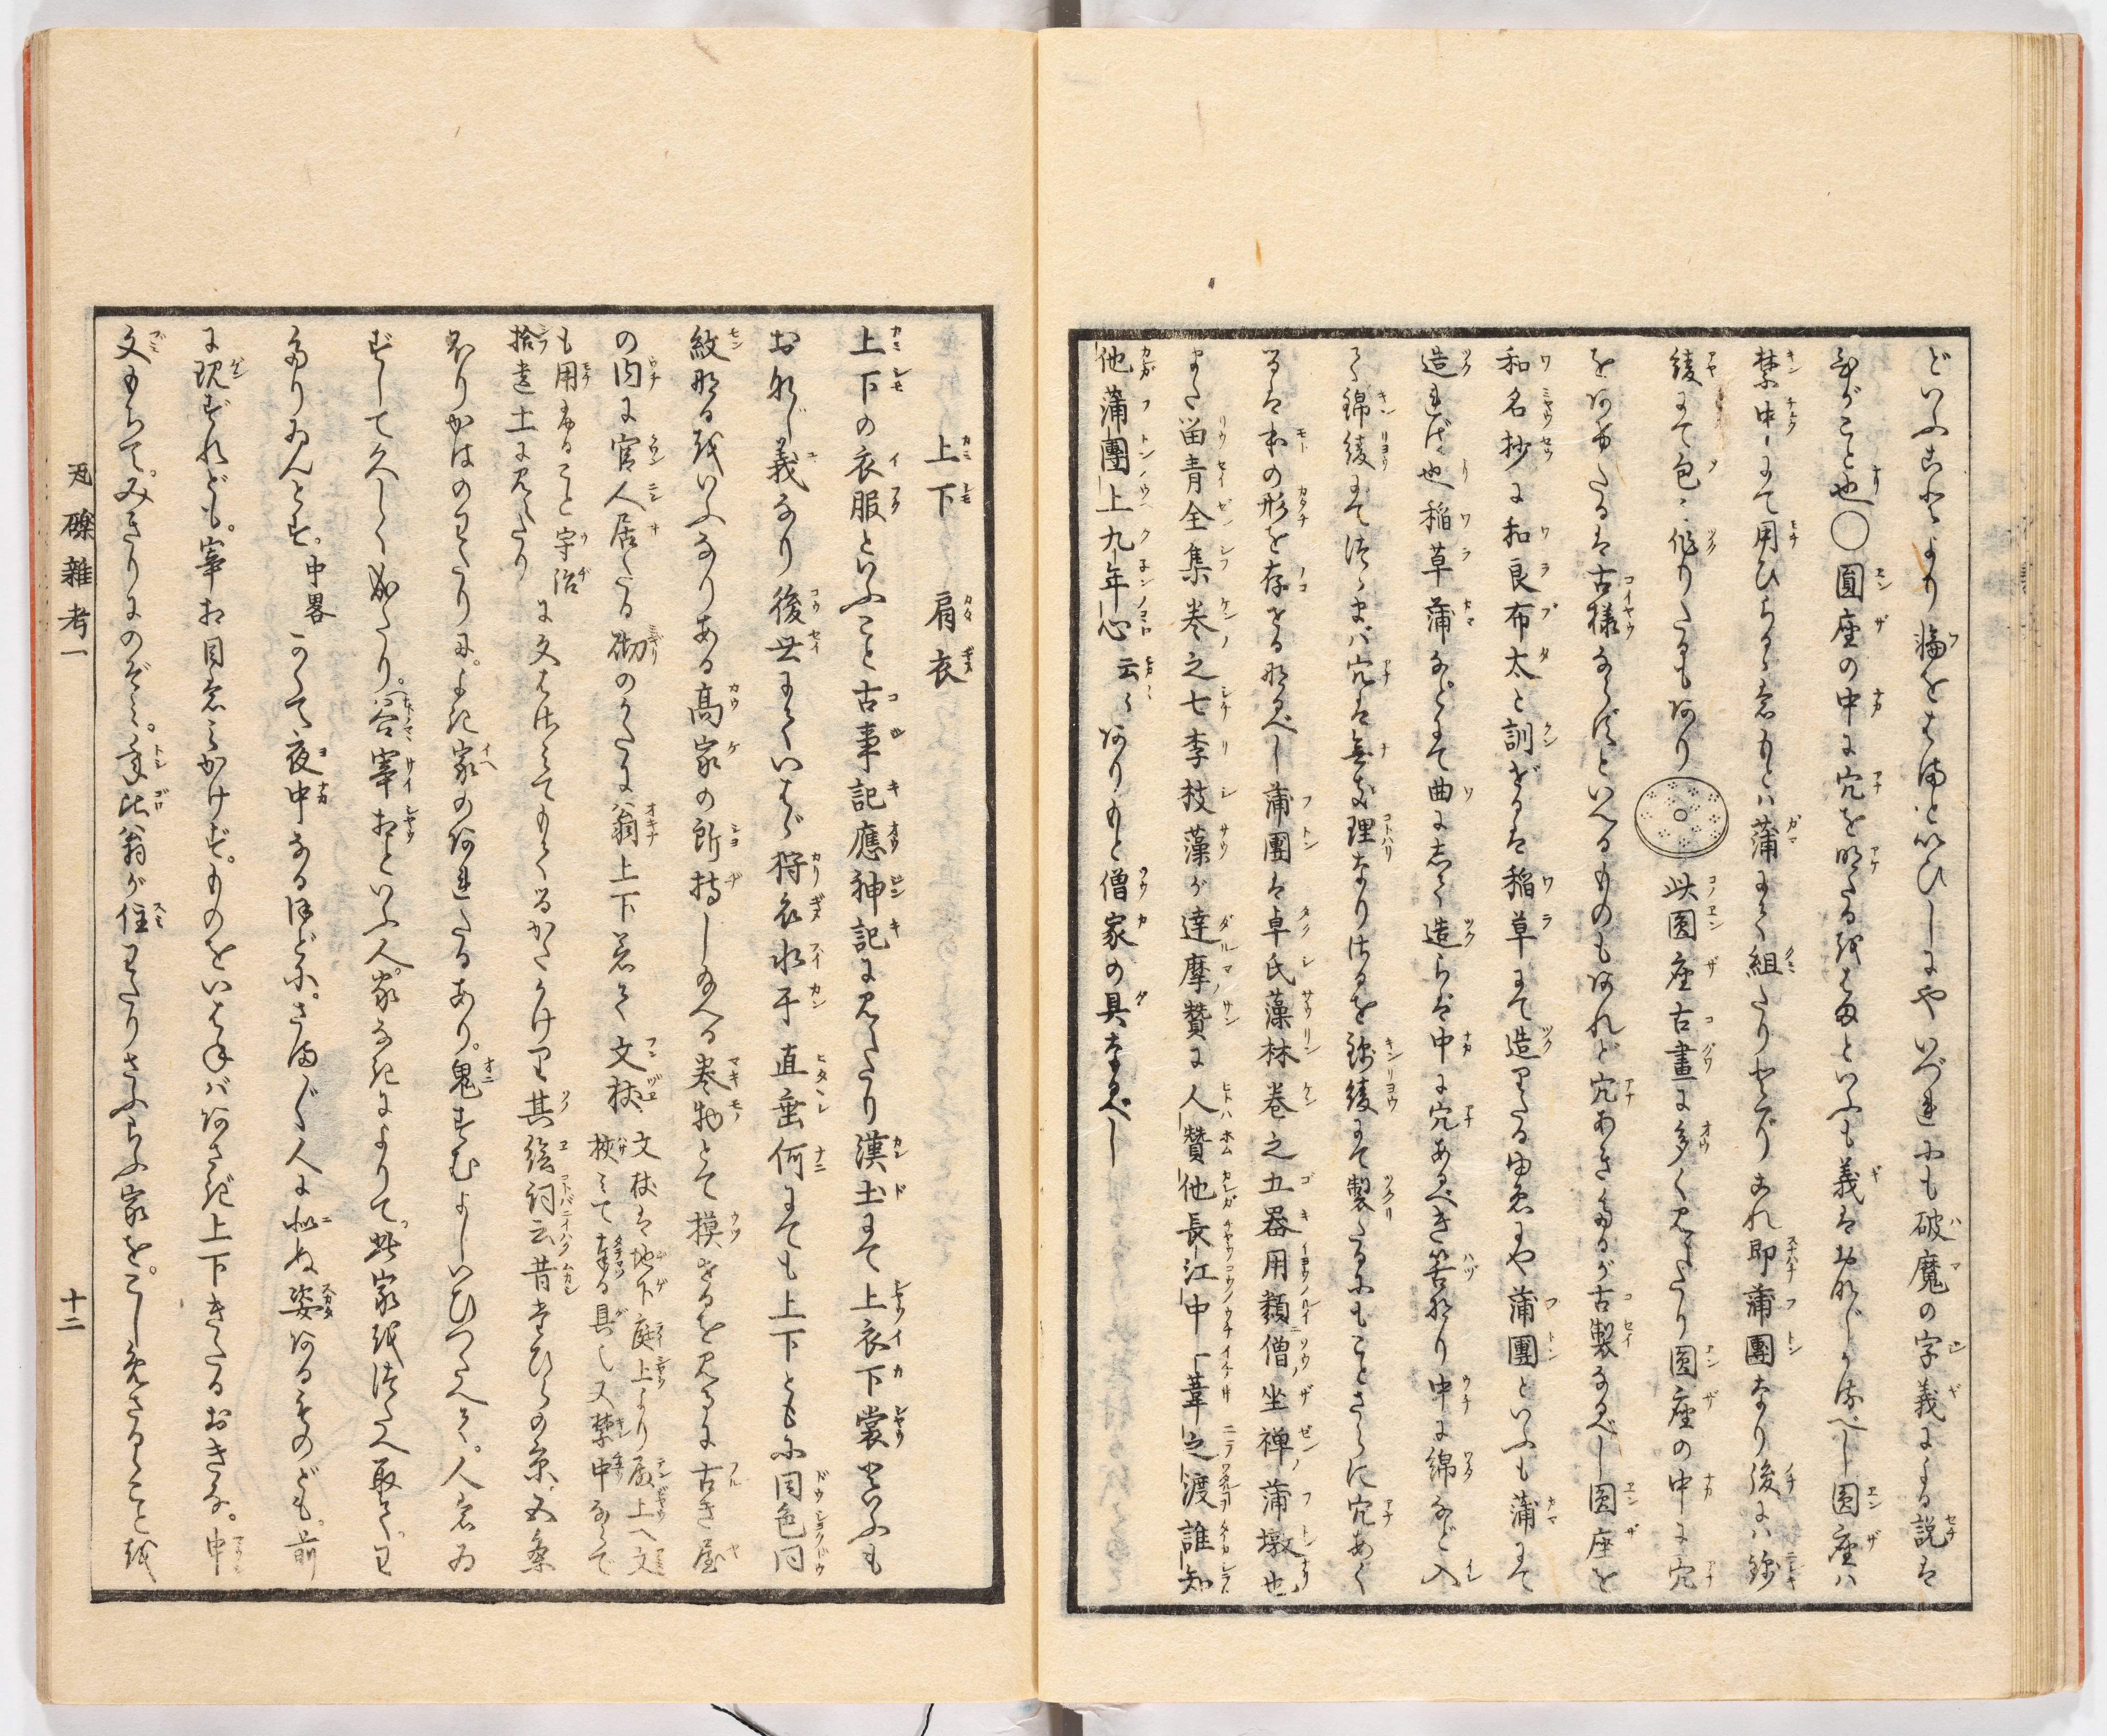 どいふあれより輪をはまといひしにやいづれにも破魔の字義による説は
ひがこと也〇圓座の中に穴を明たるをはまといふも義はおなじかるべし圓座ハ
禁中にて用ひらるゝ也もとハ蒲にて組たりけりこれ即蒲團なり後にハ錦
綾にて包ミ作りたるもあり此圓座古畫に多く見えたり圓座の中に穴
をあけたるは古様ならずといへるものもあれど穴あきたるが古製なるべし圓座を
和名抄に和良布太と訓ぜるは稲草にて造りたる由ゑにや蒲團といふも蒲にて
造ればば也稲草蒲などにて曲にまき造らば中に穴あるべき筈なり中に綿など入
て錦綾にてつゝまバ穴は無き理なりけるを錦綾にて製たるにもことさらに穴あく
るは本の形を存せるなるべし蒲團は卓氏藻林巻之五器用類僧坐禅蒲墩也
また畱青全集巻之七李枝藻が達摩賛に人賛他長江中一葦之渡誰知
他蒲團上九年心云々ありもと僧家の具なるべし
上下 肩衣
上下の衣服といふこと古事記應神記に見えたり漢土にて上衣下裳といふも
おなじ義なり後世にていはゞ狩衣水干直垂何にても上下ともに同色同
紋なるをいふなりある高家の所持し給へる巻物とて摸せるを見るに古き屋
の内に官人居たる砌のかたに翁上下着て文杖
文杖は地下庭上より殿上へ文
挾ミて奉る具也又禁中ならで
も用ゐること宇治
拾遺十に見えたり
に文をはさみてもてるかたかけり其絵詞云昔七ひらの京五条
ほりかはのわたりに。よき家のあれたるあり。鬼すむよしいひつたへて。人着ゐ
ずして久しく成たり。谷宰相といふ人。家なきによりて。此家をつたへ取て。わ
たりゐんとす。中畧かくて夜中なるほどに。さまざま人に似ぬ姿あるものども。前
に現ずれども。宰相目をミかけず。ものをいはねバあさぎ上下きたるおきな。申
文もちて。みぎりにのぞミ。年比翁が住わたりさふらふ家を。こしめさるゝことを
瓦礫雑考一
十二